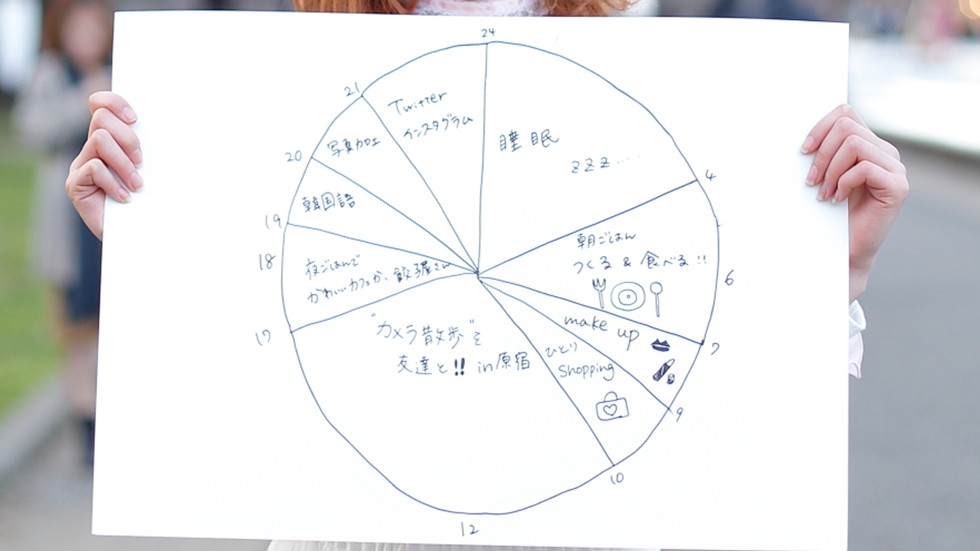 24
睡眠
zzz....
4
朝ごはん
つくる & 食べる!!
6
7
make up
9
ひとり
Shopping
10
12
"カメラ散歩"を
友達と!! in原宿
17
夜ごはんで
かわいいカフェか、餃子屋さん
18
19
韓国語
20
写真加工
21
Twitter
インスタグラム